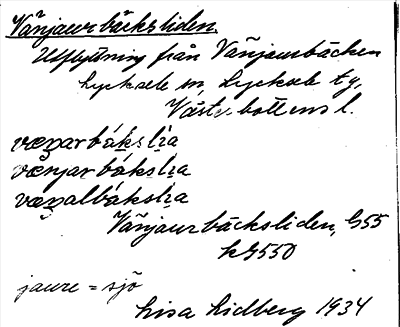 Vãnjaurbäcksliden.
Utflyttning från Vãnjaurbäcken
Lycksele sn, Lycksele tg,
Västerbottens l.
væŋarbákslia
vænjarbákslia
væŋalbákslia
Vãnjaurbäcksliden, G55
kG550
jaure = sjö
Lisa Lidberg 1934